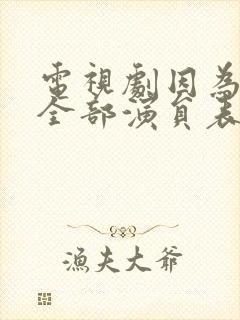 電視劇因為
全部演員表
漁夫大爺